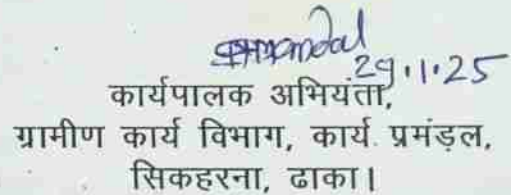 29.1.25
कार्यपालक अभियंता,
ग्रामीण कार्य विभाग, कार्य प्रमंडल,
सिकहरना, ढाका।